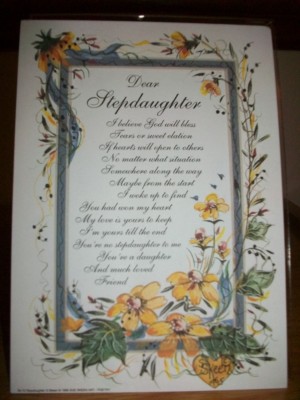 Dear
Stepdaughter
I believe God will bless
Tears or sweet elation
If hearts will open to others
No matter what situation
Somewhere along the way
Maybe from the start
I woke up to find
You had won my heart
My love is yours to keep
I'm yours till the end
You're no stepdaughter to me
You're a daughter
And much loved
Friend